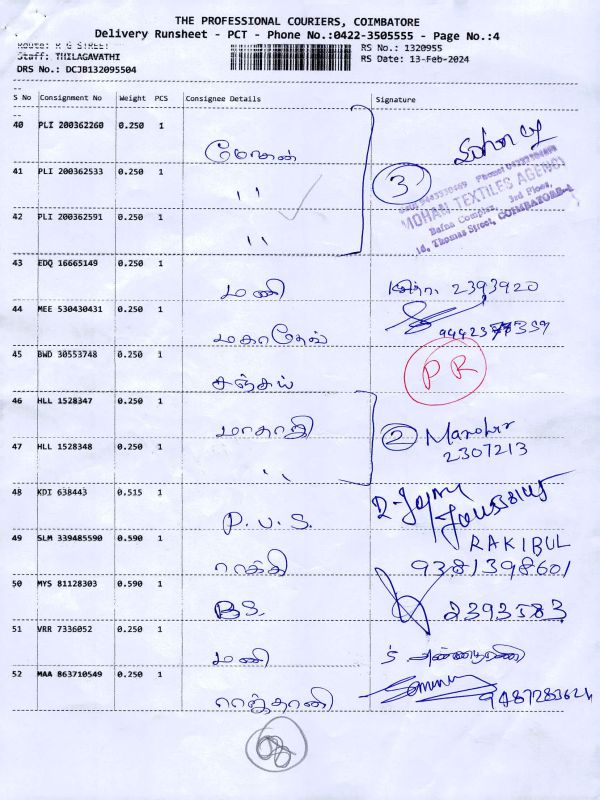 THE PROFESSIONAL COURIERS, COIMBATORE
Delivery Runsheet - PCT - Phone No.:0422-3505555 - Page No.:4
Route: R G STREET
RS No.: 1320955
Staff: THILAGAVATHI
RS Date: 13-Feb-2024
DRS No.: DCJB132095504
S No Consignment No Weight PCS Consignee Details Signature
40 PLI 200362260 0.250 1 மோகன்
41 PLI 200362533 0.250 1 " 3
MOHAN TEXTILES AGENCY
Bafna Complex, 3rd Floor,
16, Thomas Street, COIMBATORE-1
42 PLI 200362591 0.250 1 "
43 EDQ 16665149 0.250 1 மணி 2393920
44 MEE 530430431 0.250 1 மகாதேவ்
45 BWD 30553748 0.250 1 சஞ்சய் PR
46 HLL 1528347 0.250 1 மாதாஜி 2 Manohar
47 HLL 1528348 0.250 1 " 2307213
48 KDI 638443 0.515 1 P.V.S.
49 SLM 339485590 0.590 1 ராக்கி RAKIBUL
9381398601
50 MYS 81128303 0.590 1 B.S. 2393583
51 VRR 7336052 0.250 1 மணி
52 MAA 863710549 0.250 1 ராஜ்தானி 9487283624